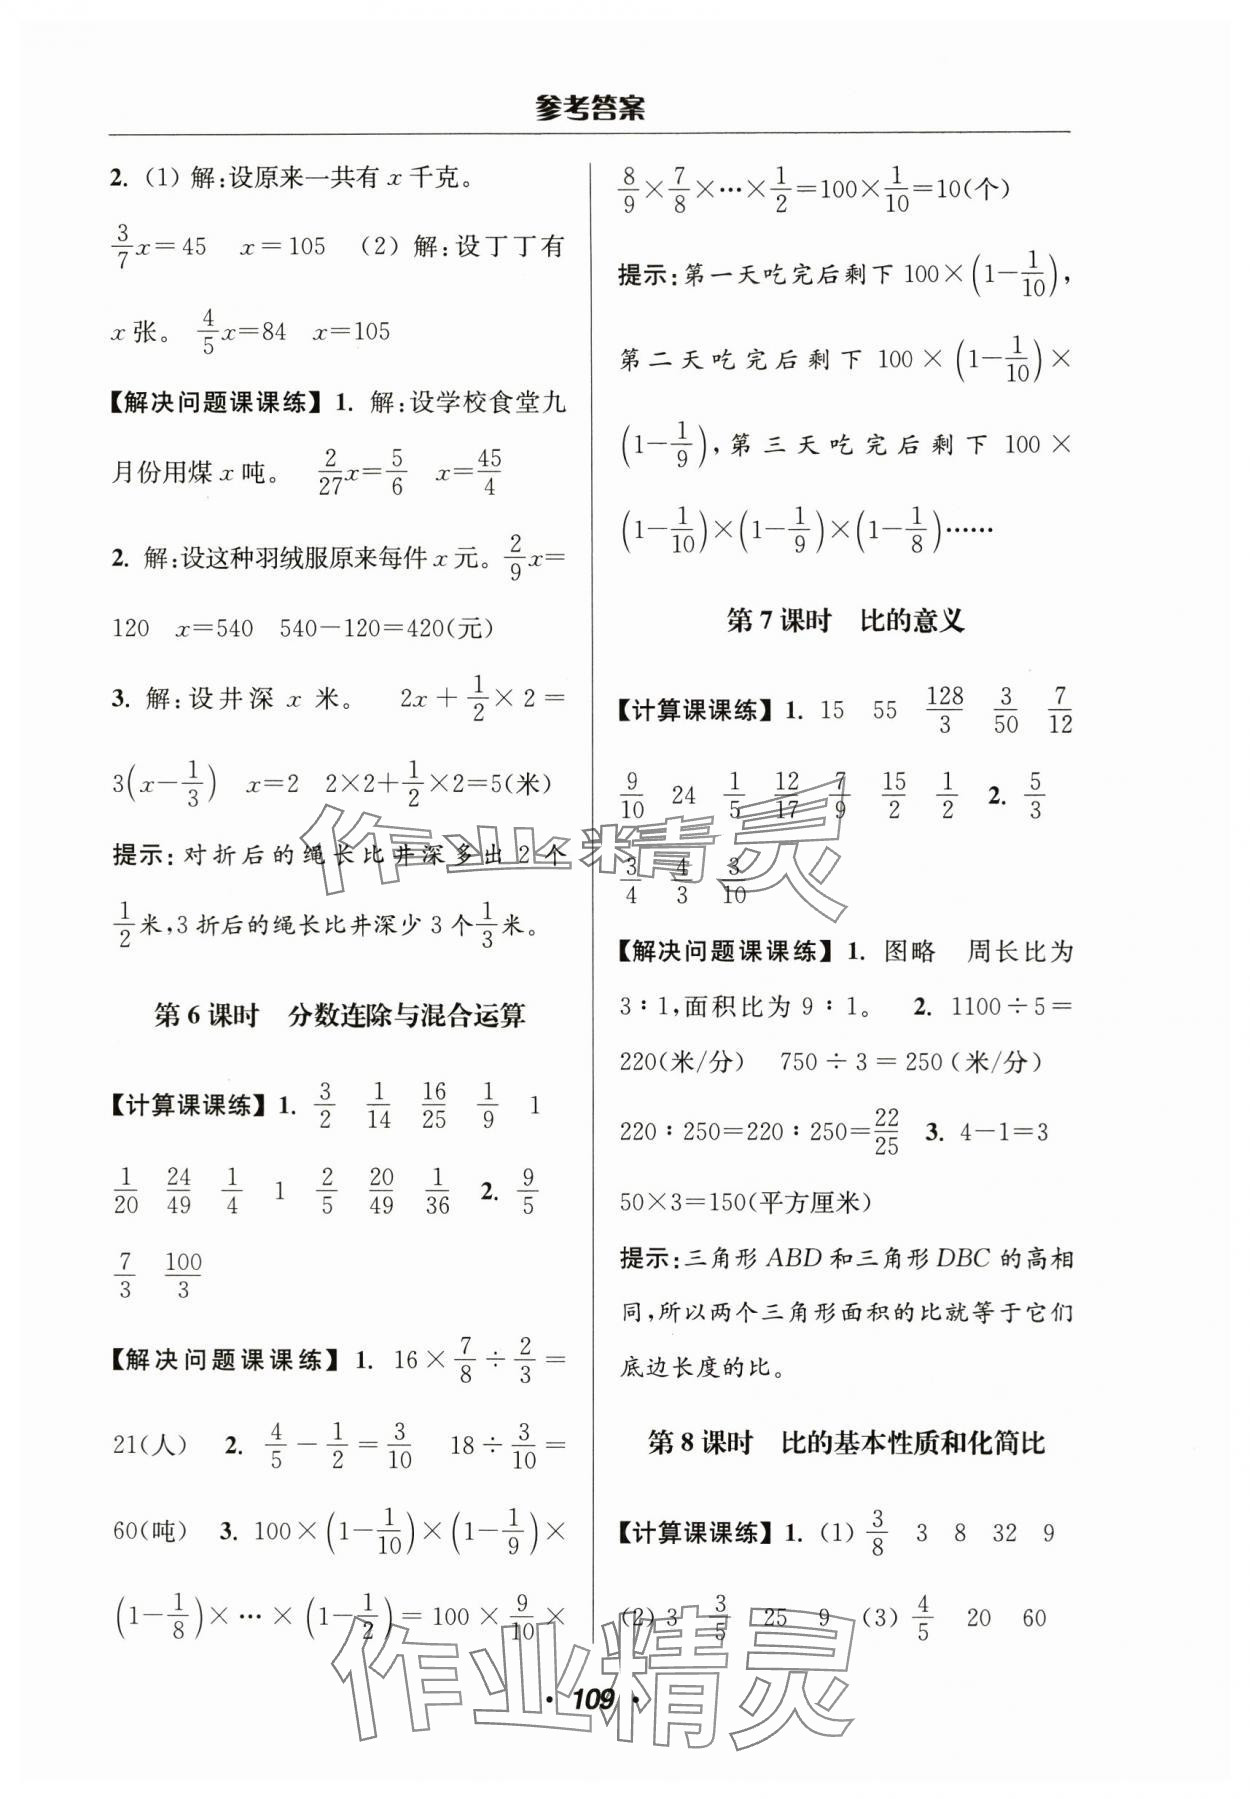 参考答案
2. (1) 解:设原来一共有 x 千克。
3/7x=45  x=105  (2) 解:设丁丁有
x 张。 4/5x=84  x=105
【解决问题课课练】1. 解:设学校食堂九
月份用煤 x 吨。 2/27x=5/6  x=45/4
2. 解:设这种羽绒服原来每件 x 元。2/9x=
120  x=540  540-120=420(元)
3. 解:设井深 x 米。 2x+1/2×2=
3(x-1/3)  x=2  2×2+1/2×2=5(米)
提示:对折后的绳长比井深多出 2 个
1/2米,3 折后的绳长比井深少 3 个1/3米。
第 6 课时 分数连除与混合运算
【计算课课练】1. 3/2  1/14  16/25  1/9  1
1/20  24/49  1/4  1  2/5  20/49  1/36  2. 9/5
7/3  100/3
【解决问题课课练】1. 16×7/8÷2/3=
21(人)  2. 4/5-1/2=3/10  18÷3/10=
60(吨)  3. 100×(1-1/10)×(1-1/9)×
(1-1/8)×…×(1-1/2)=100×9/10×
8/9×7/8×…×1/2=100×1/10=10(个)
提示:第一天吃完后剩下 100×(1-1/10),
第二天吃完后剩下 100×(1-1/10)×
(1-1/9),第三天吃完后剩下 100×
(1-1/10)×(1-1/9)×(1-1/8)……
第 7 课时 比的意义
【计算课课练】1. 15  55  128/3  3/50  7/12
9/10  24  1/5  12/17  7/9  15/2  1/2  2. 5/3
3/4  4/3  3/10
【解决问题课课练】1. 图略 周长比为
3∶1,面积比为 9∶1。 2. 1100÷5=
220(米/分)  750÷3=250(米/分)
220∶250=220∶250=22/25  3. 4-1=3
50×3=150(平方厘米)
提示:三角形 ABD 和三角形 DBC 的高相
同,所以两个三角形面积的比就等于它们
底边长度的比。
第 8 课时 比的基本性质和化简比
【计算课课练】1. (1) 3/8  3  8  32  9
(2) 3  3/5  25  9  (3) 4/5  20  60
· 109 ·
作业精灵
作业精灵